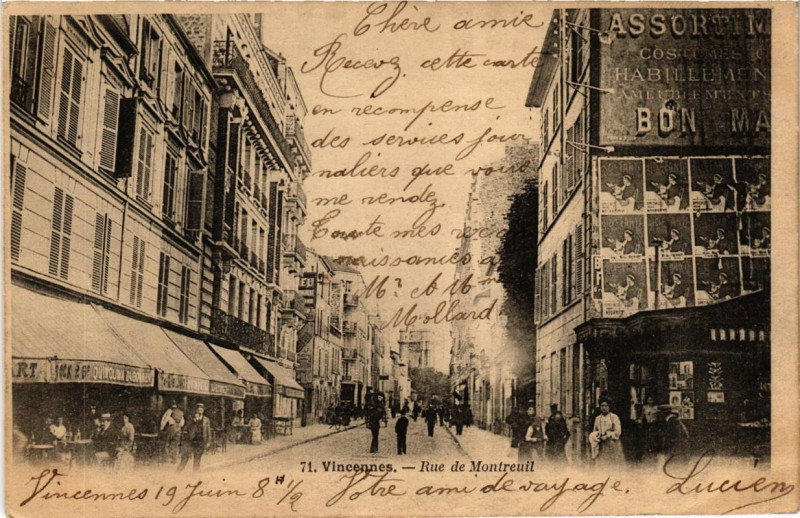 ASSORTIM
COSTUMES C
HABILLEMEN
AMEUBLEMENTS
BON MA
Chère amie
Recevez cette carte
en recompense
des services jour
naliers que vous
me rendez
Toute mes recon
naissances a
Mr et Mme
Mollard
QUINQUINA
71. Vincennes. — Rue de Montreuil
Vincennes 19 Juin 8H 1/2
Votre ami de voyage. Lucien